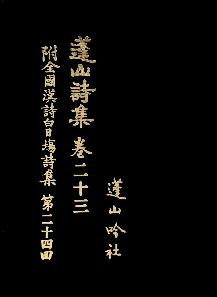 蓬山詩集 卷二十三
附全國漢詩白日場詩集 第二十四回
蓬山吟社